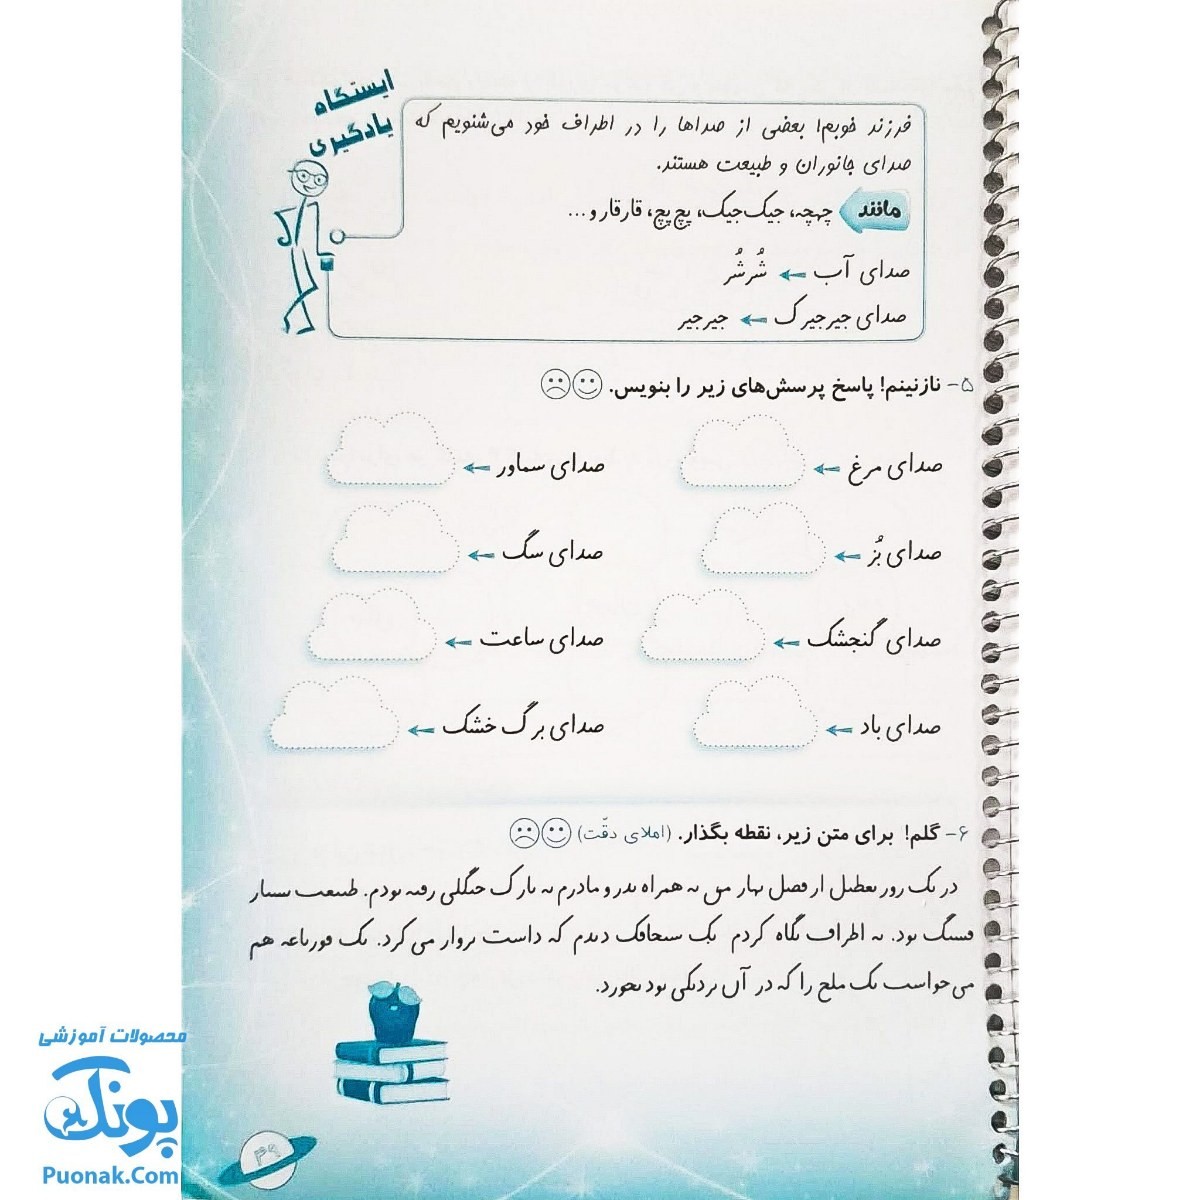 ایستگاه
یادگیری
فرزند خوبم! بعضی از صداها را در اطراف خود می‌شنویم که
صدای جانوران و طبیعت هستند.
مانند چهچه، جیک‌جیک، پچ‌پچ، قارقار و...
صدای آب ← شُرشُر
صدای جیرجیرک ← جیرجیر
۵- نازنینم! پاسخ پرسش‌های زیر را بنویس.
صدای مرغ ← صدای سماور ←
صدای بُز ← صدای سگ ←
صدای گنجشک ← صدای ساعت ←
صدای باد ← صدای برگ خشک ←
۶- گلم! برای متن زیر، نقطه بگذار. (املای دقّت)
در ٮک رور ٮعطٮل ار فصل ٮهار مں ٮه همراه ٮدر و مادرم ٮه ٮارک حٮگلی رفٮه ٮودم. طٮٮعٮ ٮسٮار
ڡسٮگ ٮود. ٮه اطراف ٮگاه کردم ٮک سٮحاڡک دٮدم که داسٮ ٮروار می کرد. ٮک ڡورٮاعه هم
می حواسٮ ٮک ملح را که در آں ٮردٮکی ٮود ٮحورد.
۳۹
محصولات آموزشی
پونک
Puonak.Com